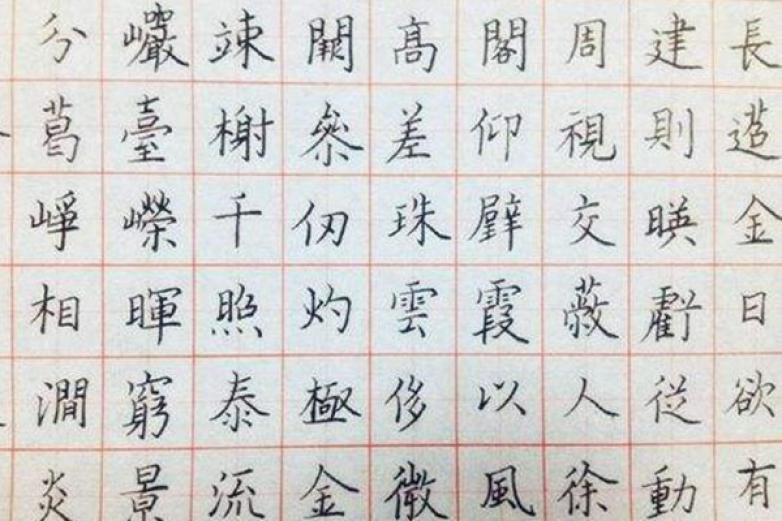 分巖竦闕髙閣周建長
葛臺榭叅差仰視則迢
崢嶸千仞珠璧交映金
相暉照灼雲霞蔽虧日
澗窮泰極侈以人從欲
炎景流金微風徐動有